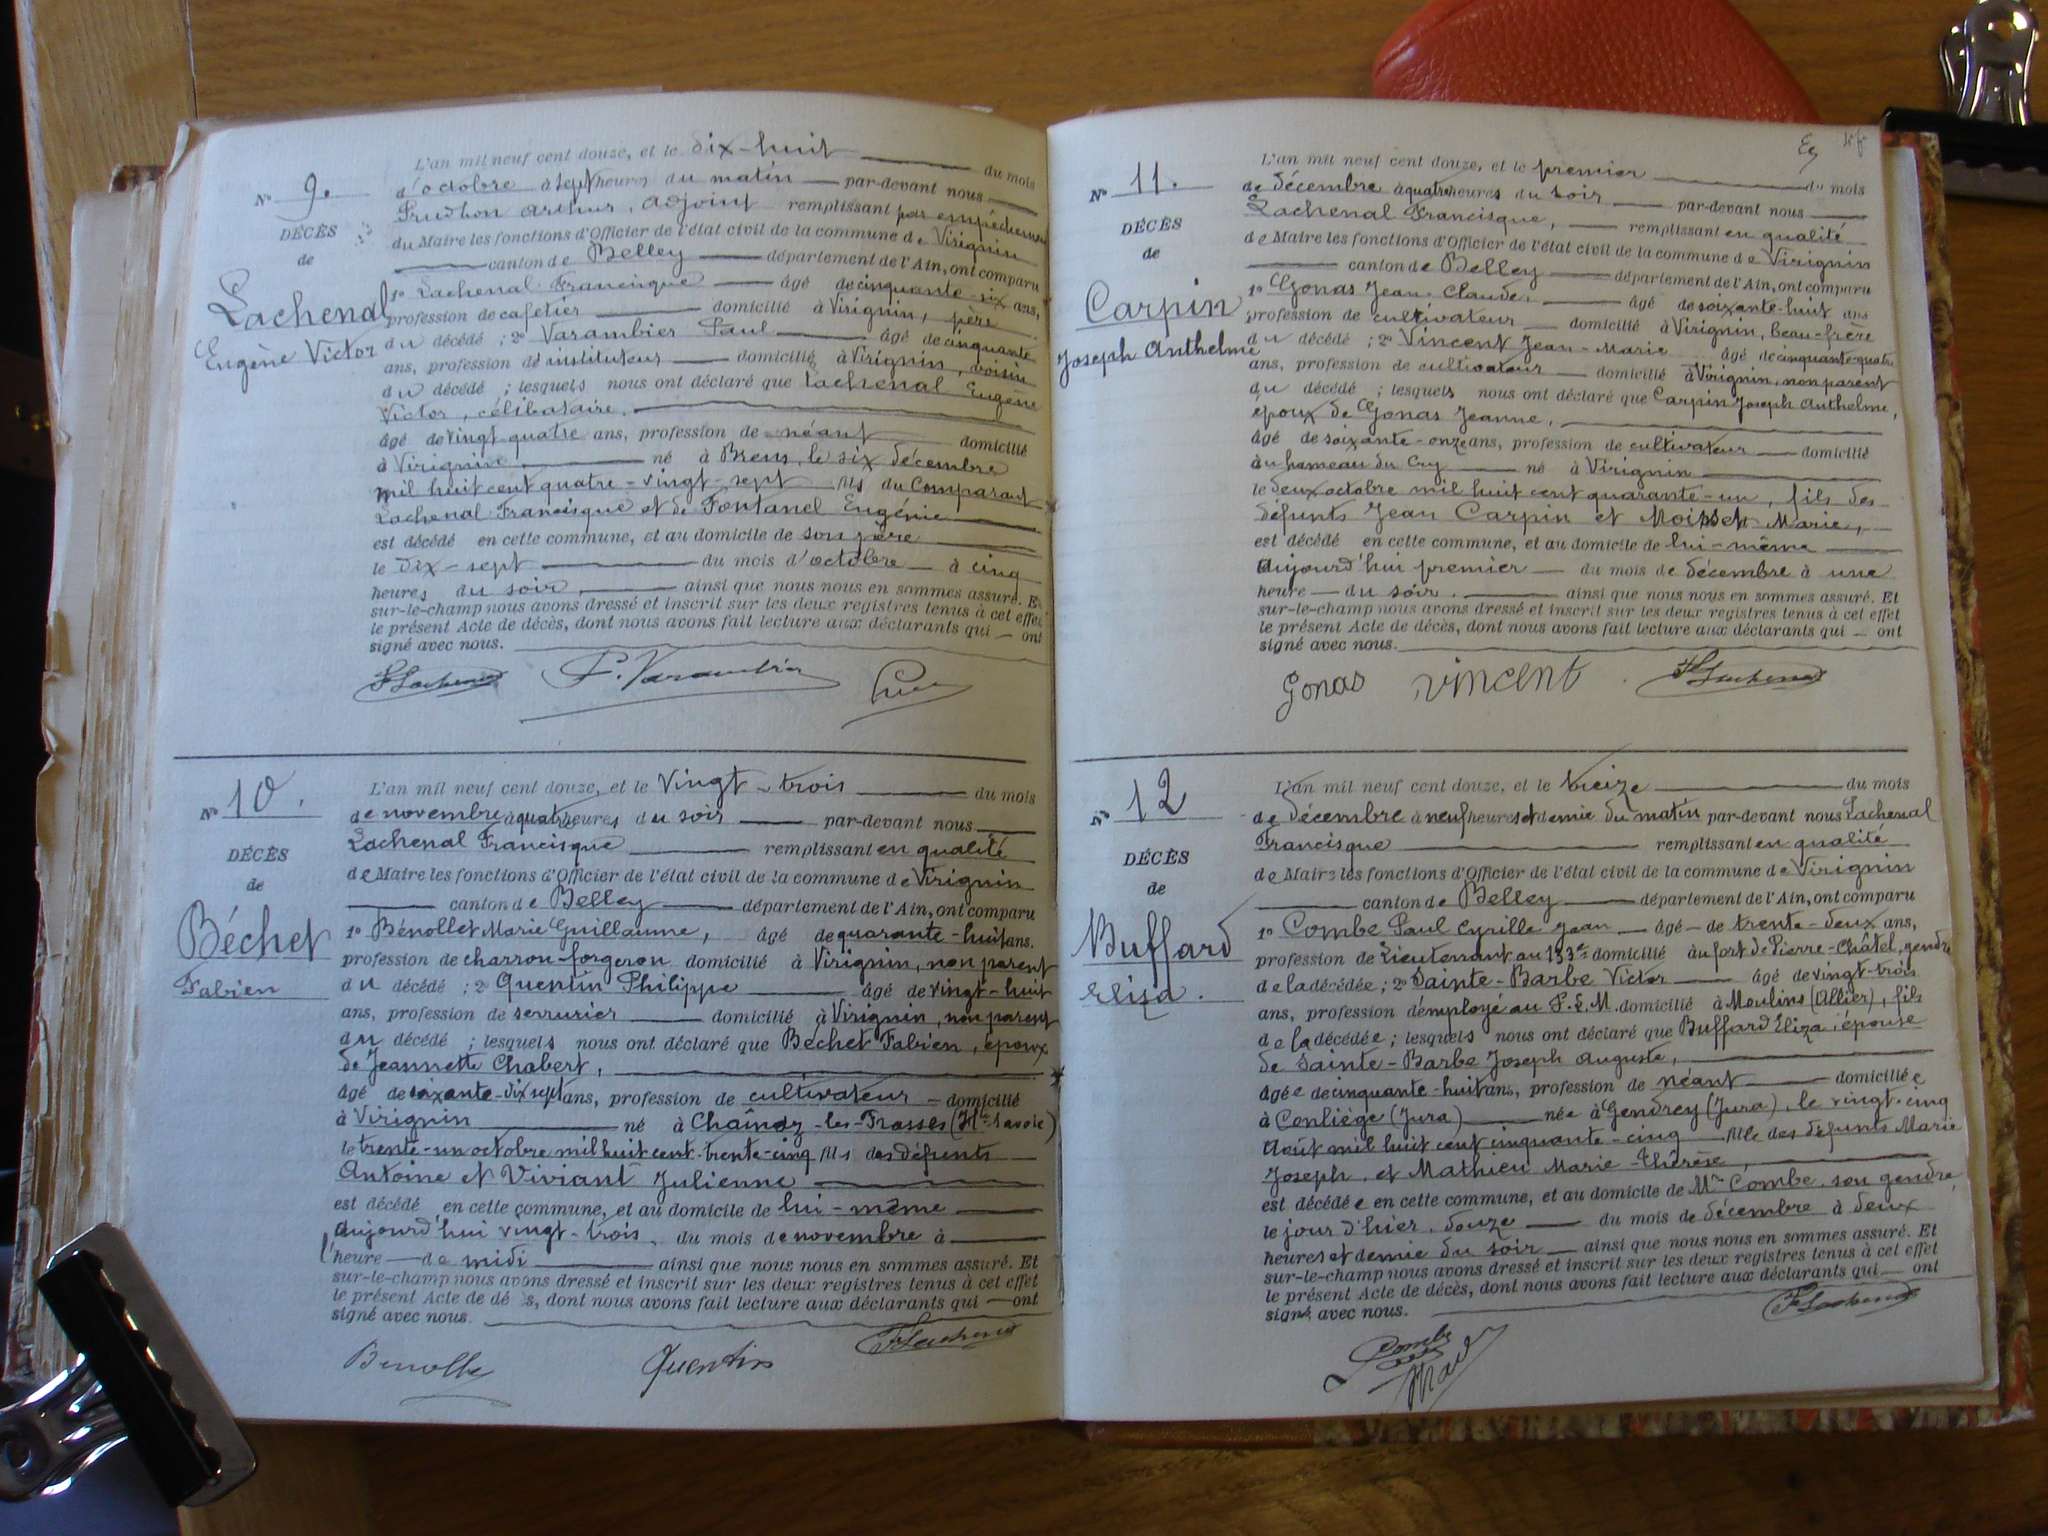 L'an mil neuf cent douze, et le dix-huit du mois
d'octobre à sept heures du matin par-devant nous
Prudhon Arthur, adjoint remplissant par empêchement
du Maire les fonctions d'Officier de l'état civil de la commune de Virignin
canton de Belley département de l'Ain, ont comparu
1º Lachenal Francisque âgé de cinquante-six ans,
profession de cafetier domicilié à Virignin, père
du décédé ; 2º Varambier Paul âgé de cinquante
ans, profession d'instituteur domicilié à Virignin, voisin
du décédé ; lesquels nous ont déclaré que Lachenal Eugène
Victor, célibataire,
âgé de vingt quatre ans, profession de néant domicilié
à Virignin né à Brens, le six décembre
mil huit cent quatre-vingt-sept fils du comparant
Lachenal Francisque et de Fontanel Eugénie
est décédé en cette commune, et au domicile de son père
le dix-sept du mois d'octobre à cinq
heures du soir ainsi que nous nous en sommes assuré. Et
sur-le-champ nous avons dressé et inscrit sur les deux registres tenus à cet effet
le présent Acte de décès, dont nous avons fait lecture aux déclarants qui ont
signé avec nous.
Nº 9.
DÉCÈS
de
Lachenal
Eugène Victor
F Lachenal P. Varambier
Nº 10.
DÉCÈS
de
Béchet
Fabien
L'an mil neuf cent douze, et le vingt-trois du mois
de novembre à quatre heures du soir par-devant nous
Lachenal Francisque remplissant en qualité
de Maire les fonctions d'Officier de l'état civil de la commune de Virignin
canton de Belley département de l'Ain, ont comparu
1º Bénollet Marie Guillaume, âgé de quarante-huit ans.
profession de charron-forgeron domicilié à Virignin, non parent
du décédé ; 2º Quentin Philippe âgé de vingt-huit
ans, profession de serrurier domicilié à Virignin, non parent
du décédé ; lesquels nous ont déclaré que Béchet Fabien, époux
de Jeannette Chabert,
âgé de soixante-dix sept ans, profession de cultivateur domicilié
à Virignin né à Chaînaz-les-Frasses (Hte Savoie)
le trente-un octobre mil huit cent trente-cinq fils des défunts
Antoine et Viviant Julienne
est décédé en cette commune, et au domicile de lui-même
aujourd'hui vingt-trois, du mois de novembre à
l'heure de midi ainsi que nous nous en sommes assuré. Et
sur-le-champ nous avons dressé et inscrit sur les deux registres tenus à cet effet
le présent Acte de dé s, dont nous avons fait lecture aux déclarants qui ont
signé avec nous.
Benollet Quentin F Lachenal
Nº 11.
DÉCÈS
de
Carpin
Joseph Anthelme
L'an mil neuf cent douze, et le premier du mois
de décembre à quatre heures du soir par-devant nous
Lachenal Francisque, remplissant en qualité
de Maire les fonctions d'Officier de l'état civil de la commune de Virignin
canton de Belley département de l'Ain, ont comparu
1º Gonas Jean-Claude, âgé de soixante-huit ans
profession de cultivateur domicilié à Virignin, beau-frère
du décédé ; 2º Vincent Jean-Marie âgé de cinquante-quatre
ans, profession de cultivateur domicilié à Virignin, non parent
du décédé ; lesquels nous ont déclaré que Carpin Joseph Anthelme,
époux de Gonas Jeanne,
âgé de soixante-onze ans, profession de cultivateur domicilié
au hameau du Cry né à Virignin
le deux octobre mil huit cent quarante-un, fils des
défunts Jean Carpin et Marie,
est décédé en cette commune, et au domicile de lui-même
aujourd'hui premier du mois de décembre à une
heure du soir. ainsi que nous nous en sommes assuré. Et
sur-le-champ nous avons dressé et inscrit sur les deux registres tenus à cet effet
le présent Acte de décès, dont nous avons fait lecture aux déclarants qui ont
signé avec nous.
Gonas Vincent F Lachenal
Nº 12
DÉCÈS
de
Buffard
Eliza.
L'an mil neuf cent douze, et le treize du mois
de décembre à neuf heures et demie du matin par-devant nous Lachenal
Francisque remplissant en qualité
de Maire les fonctions d'Officier de l'état civil de la commune de Virignin
canton de Belley département de l'Ain, ont comparu
1º Combe Paul Cyrille Jean âgé de trente-deux ans,
profession de Lieutenant au 133e domicilié au fort de Pierre-Châtel, gendre
de la décédée ; 2º Sainte-Barbe Victor âgé de vingt-trois
ans, profession d'employé au P.L.M. domicilié à Moulins (Allier), fils
de la décédée ; lesquels nous ont déclaré que Buffard Eliza épouse
de Sainte-Barbe Joseph Auguste,
âgée de cinquante-huit ans, profession de néant domiciliée
à Conliège (Jura) née à Gendrey (Jura), le vingt-cinq
Août mil huit cent cinquante-cinq fille des défunts Marie
Joseph, et Mathieu Marie-Thérèse,
est décédée en cette commune, et au domicile de Mr Combe, son gendre,
le jour d'hier, douze du mois de décembre à deux
heures et demie du soir ainsi que nous nous en sommes assuré. Et
sur-le-champ nous avons dressé et inscrit sur les deux registres tenus à cet effet
le présent Acte de décès, dont nous avons fait lecture aux déclarants qui ont
signé avec nous.
F Lachenal
Combe